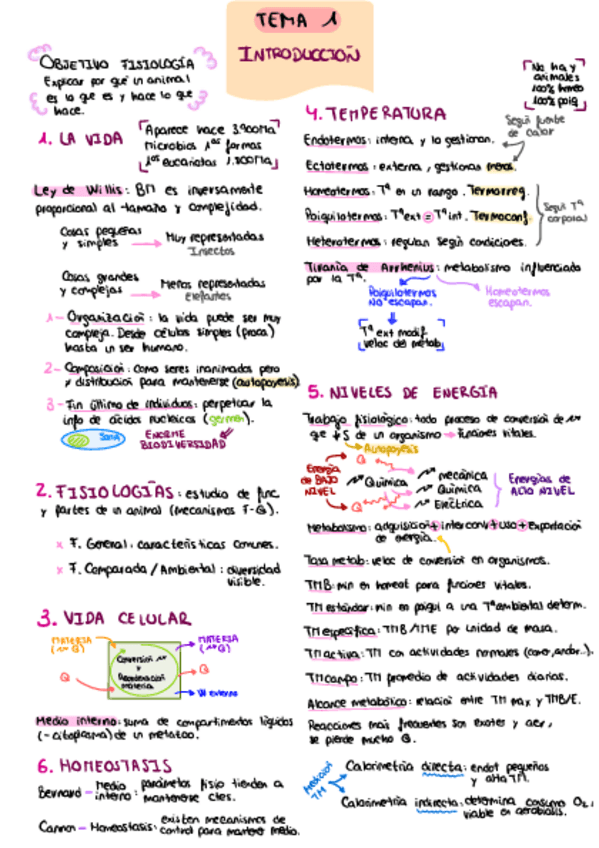 TEMA 1
INTRODUCCIÓN
OBJETIVO FISIOLOGÍA
Explicar por qué un animal
es lo que es y hace lo que
hace.
1. LA VIDA
Aparece hace 3.900Ma
Microbios 1as formas
1os eucariotas 1.800Ma
Ley de Willis: BD es inversamente
proporcional al tamaño y complejidad.
Cosas pequeñas
y simples → Muy representadas
Insectos
Cosas grandes
y complejas → Menos representadas
Elefantes
1- Organización: la vida puede ser muy
compleja. Desde células simples (proca)
hasta un ser humano.
2- Composición: como seres inanimados pero
≠ distribución para mantenerse (autopoyesis)
3- Fin último de individuos: perpetuar la
info de ácidos nucleicos (germen).
Soma
ENORME
BIODIVERSIDAD
2. FISIOLOGÍAS: estudio de func.
y partes de un animal (mecanismos F-Q).
x F. General: características comunes.
x F. Comparada / Ambiental: diversidad
visible.
3. VIDA CELULAR
MATERIA
Q
Conversión
y
Reordenación
materia
MATERIA
Q
W externo
Medio interno: suma de compartimentos líquidos
(-citoplasma) de un metazoo.
6. HOMEOSTASIS
Bernard - medio interno: parámetros fisio tienden a
mantenerse ctes.
Cannon - Homeostasis: existen mecanismos de
control para mantener medio.
No hay
animales
100% homeo
100% poiq
4. TEMPERATURA
Según fuente
de calor
Endotermos: interna y la gestionan.
Ectotermos: externa, gestionan menos.
Homeotermos: Tª en un rango. Termorreg.
Poiquilotermos: Tª ext = Tª int. Termoconf.
Heterotermos: regulan según condiciones.
Según Tª
corporal
Tiranía de Arrhenius: metabolismo influenciado
por la Tª.
Poiquilotermos
No escapan.
Homeotermos
escapan.
Tª ext modif.
veloc del metab
5. NIVELES DE ENERGÍA
Trabajo fisiológico: todo proceso de conversión de
que ↓S de un organismo → funciones vitales.
Autopoyesis
Energía
de BAJO
NIVEL
Q
Química
Q
mecánica
Química
Eléctrica
Energías de
ALTO NIVEL
Metabolismo: adquisición + interconv + uso + exportación
de energía.
Tasa metab: veloc de conversión en organismos.
TMB: min en homeot para funciones vitales.
TM estándar: min en poiqui a una Tª ambiental determ.
TM específica: TMB/TME por unidad de masa.
TM activa: TM con actividades normales (comer, andar..).
TM campo: TM promedio de actividades diarias.
Alcance metabólico: relación entre TM max y TMB/E.
Reacciones más frecuentes son exoter y aer,
se pierde mucho Q.
Medición
TM
Calorimetría directa: endot pequeños
y alta TM.
Calorimetría indirecta: determina consumo O2,
viable en aerobiosis.